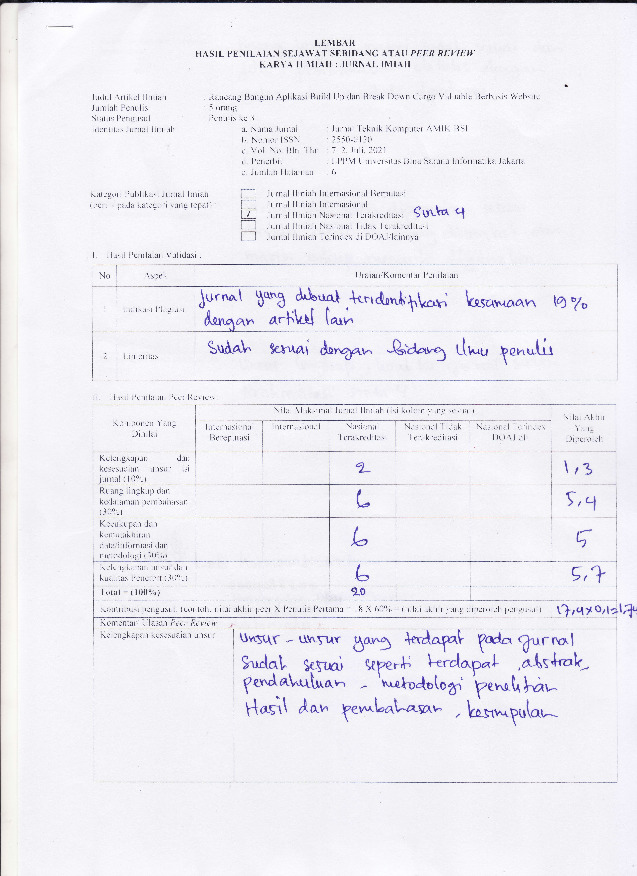 LEMBAR
HASIL PENILAIAN SEJAWAT SEBIDANG ATAU PEER REVIEW
KARYA ILMIAH : JURNAL IMIAH
Judul Artikel Ilmiah : Rancang Bangun Aplikasi Build Up dan Break Down Cargo Valuable Berbasis Website
Jumlah Penulis : 5 orang
Status Pengusul : Penulis ke 3
Identitas Jurnal Ilmiah : a. Nama Jurnal : Jurnal Teknik Komputer AMIK BSI
b. Nomor ISSN : 2550-0120
c. Vol. No. Bln. Thn : 7, 2, Juli, 2021
d. Penerbit : LPPM Universitas Bina Sarana Informatika Jakarta
e. Jumlah Halaman : 6
Kategori Publikasi Jurnal Ilmiah Jurnal Ilmiah Internasional Bereputasi
(beri √ pada kategori yang tepat) Jurnal Ilmiah Internasional
√ Jurnal Ilmiah Nasional Terakreditasi Sinta 4
Jurnal Ilmiah Nasional Tidak Terakreditasi
Jurnal Ilmiah Terindex di DOAJ/lainnya
I. Hasil Penilaian Validasi :
No Aspek Uraian/Komentar Penilaian
1 Indikasi Plagiasi Jurnal yang dibuat teridentifikasi kesamaan 19%
dengan artikel lain
2 Linieritas Sudah sesuai dengan bidang Ilmu penulis
II. Hasil Penilaian Peer Review
Komponen Yang Dinilai Nilai Maksimal Jurnal Ilmiah (isi kolom yang sesuai) Nilai Akhir Yang Diperoleh
Internasional Bereputasi Internasional Nasional Terakreditasi Nasional Tidak Terakreditasi Nasional Terindex DOAJ dll
Kelengkapan dan kesesuaian unsur isi jurnal (10%) 2 1,3
Ruang lingkup dan kedalaman pembahasan (30%) 6 5,4
Kecukupan dan kemutakhiran data/informasi dan metodologi (30%) 6 5
Kelengkapan unsur dan kualitas Penerbit (30%) 6 5,7
Total = (100%) 20
Kontribusi pengusul: (contoh: nilai akhir peer X Penulis Pertama = 8 X 60% = nilai akhir yang diperoleh pengusul) 17,4x0,1=1,74
Komentar/Ulasan Peer Review
Kelengkapan kesesuaian unsur Unsur - unsur yang terdapat pada Jurnal
Sudah sesuai seperti terdapat, abstrak,
pendahuluan - metodologi penelitian
Hasil dan pembahasan, kesimpulan